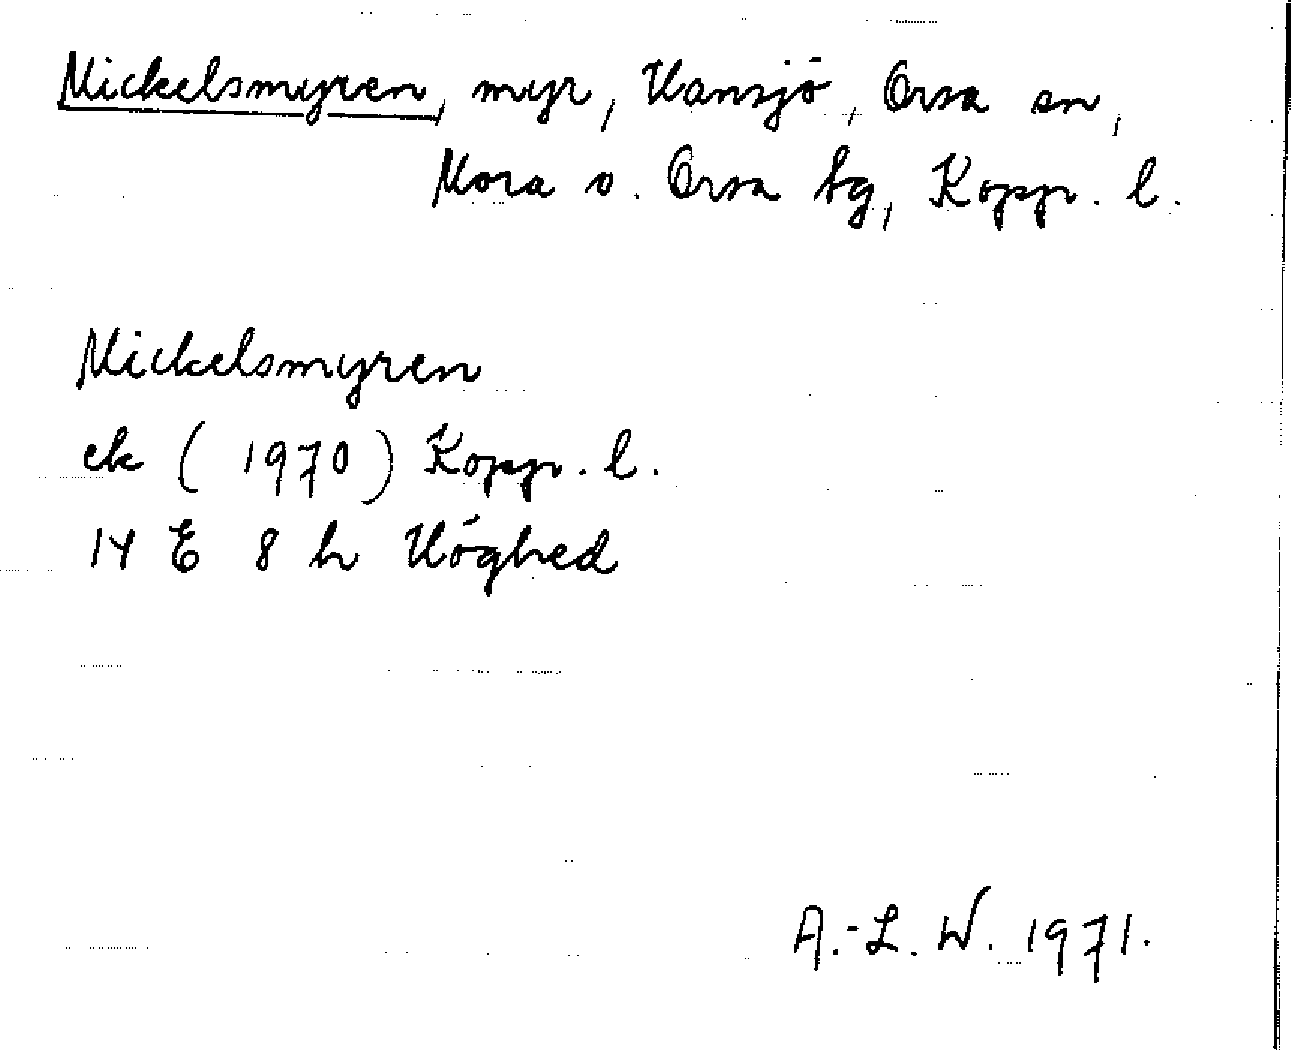 Mickelsmyren, myr, Hansjö, Orsa sn,
Mora o. Orsa tg, Kopp. l.
Mickelsmyren
ek (1970) Kopp. l.
14 E 8 h Höghed
A.-L. W. 1971.